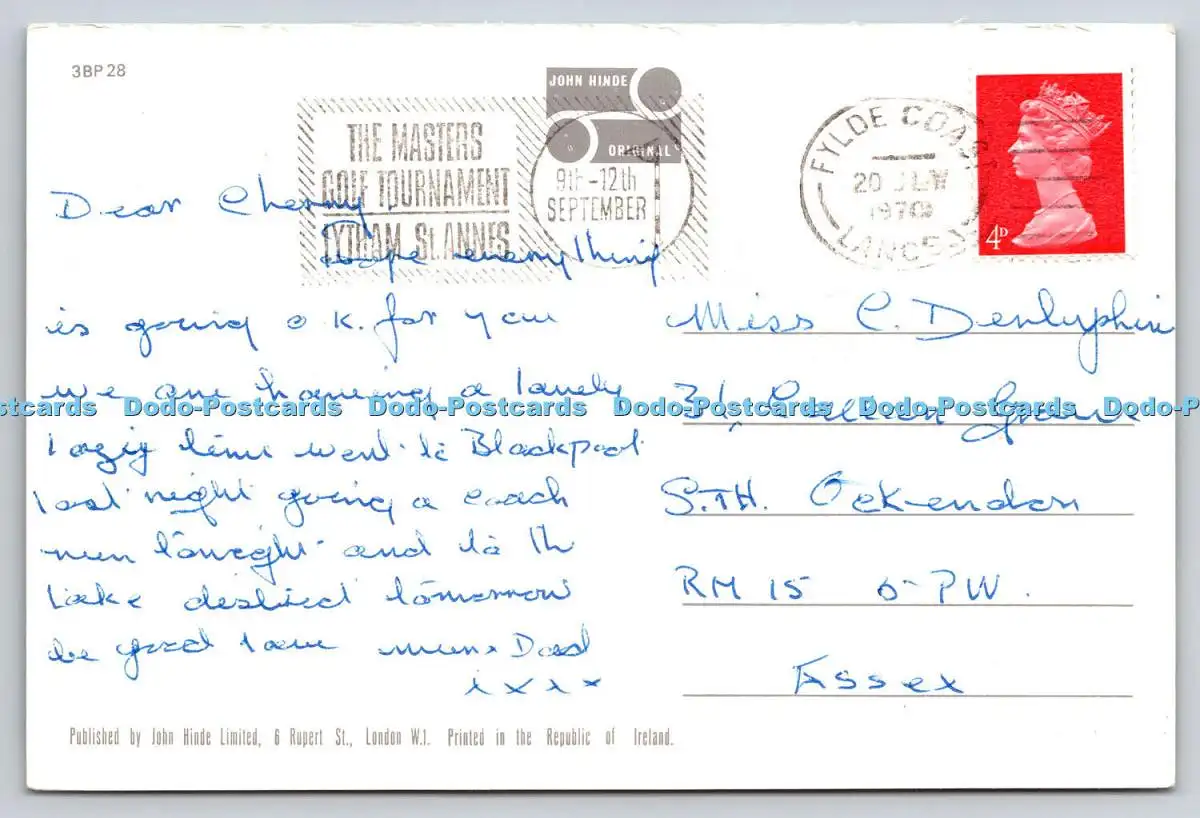 3BP 28
JOHN HINDE
ORIGINAL
THE MASTERS
GOLF TOURNAMENT
LYTHAM St. ANNES
9th-12th
SEPTEMBER
FYLDE COAST
20 JLY
1970
LANCS
4D
Dear Cherry
hope everything
is going o.k. for you
we are having a lovely
lazy time went to Blackpool
last night going a coach
run tonight and to th
Lake district tomorrow
be good love mum & Dad
x x x x
Miss C.
31,
STH. Ockendon
RM 15 6-PW.
Essex
Published by John Hinde Limited, 6 Rupert St., London W.1. Printed in the Republic of Ireland.
Dodo-Postcards Dodo-Postcards Dodo-Postcards Dodo-Postcards Dodo-Postcards